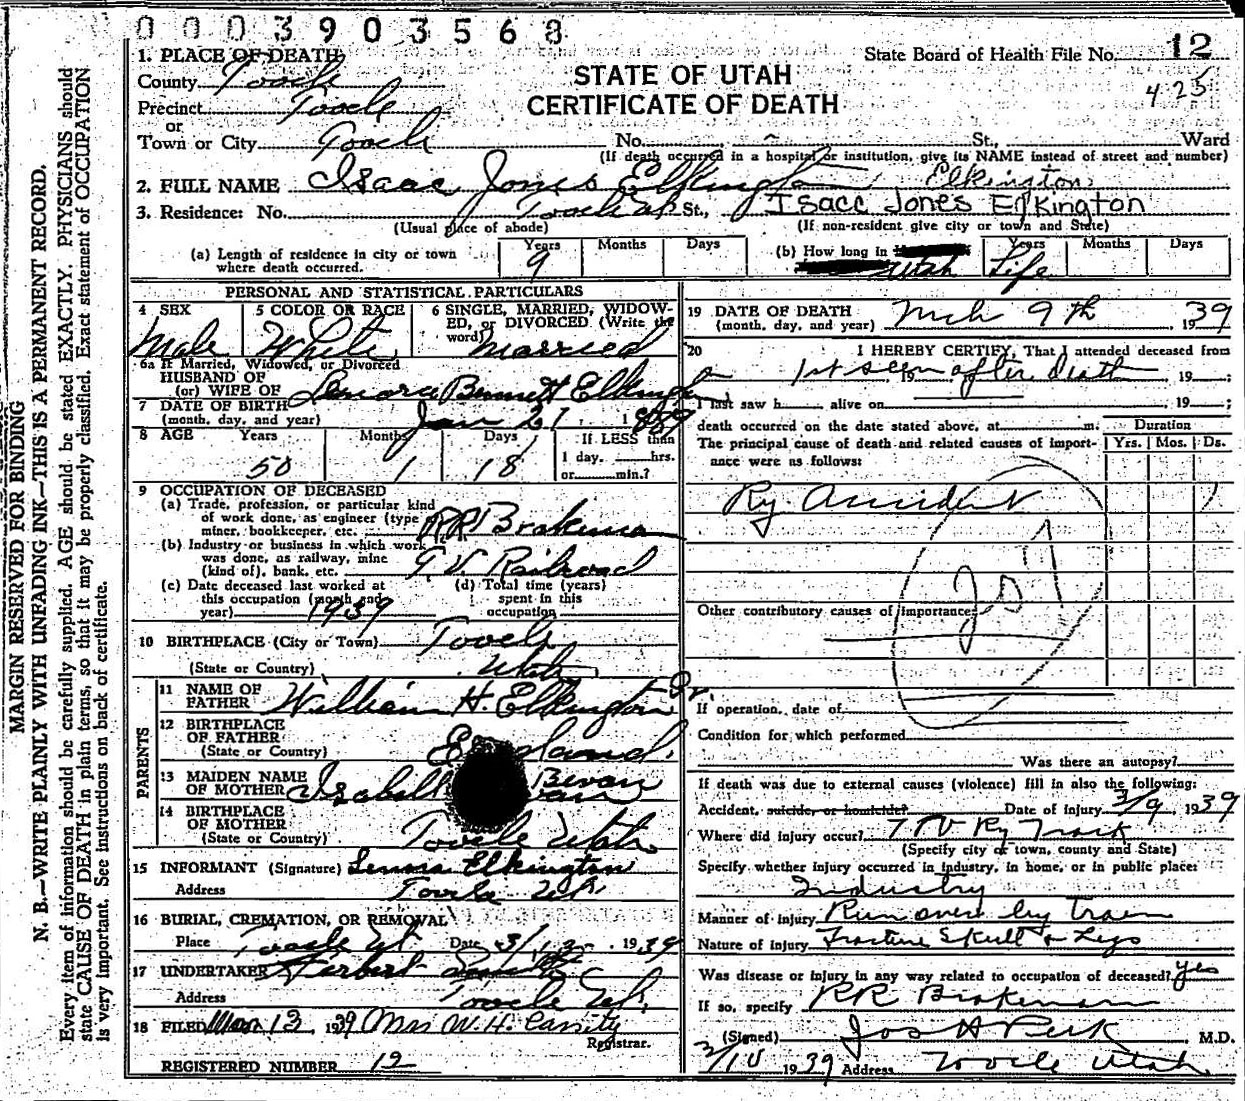 0003903568
1. PLACE OF DEATH
State Board of Health File No. 12
County Tooele
STATE OF UTAH
425
Precinct Tooele
CERTIFICATE OF DEATH
or
Town or City Tooele No. St., Ward
(If death occurred in a hospital or institution, give its NAME instead of street and number)
2. FULL NAME Isaac Jones Elkington Elkington
3. Residence: No. Tooele St., Isacc Jones Elkington
(Usual place of abode) (If non-resident give city or town and State)
(a) Length of residence in city or town where death occurred. Years 9 Months Days (b) How long in Utah Years Life Months Days
PERSONAL AND STATISTICAL PARTICULARS
4 SEX Male
5 COLOR OR RACE White
6 SINGLE, MARRIED, WIDOWED, or DIVORCED (Write the word) Married
6a If Married, Widowed, or Divorced
HUSBAND OF
(or) WIFE OF Lenora Bennett Elkington
7 DATE OF BIRTH
(month, day, and year) Jan 21 1889
8 AGE Years Months Days If LESS than
50 1 18 1 day, hrs.
or min.?
9 OCCUPATION OF DECEASED
(a) Trade, profession, or particular kind
of work done, as engineer (type
miner, bookkeeper, etc. R.R. Brakeman
(b) Industry or business in which work
was done, as railway, mine
(kind of), bank, etc. T.V. Railroad
(c) Date deceased last worked at
this occupation (month and
year) 1939
(d) Total time (years)
spent in this
occupation
10 BIRTHPLACE (City or Town) Tooele
(State or Country) Utah
PARENTS
11 NAME OF
FATHER William H. Elkington Sr.
12 BIRTHPLACE
OF FATHER
(State or Country) England
13 MAIDEN NAME
OF MOTHER Isabell Bevan
14 BIRTHPLACE
OF MOTHER
(State or Country) Tooele Utah
15 INFORMANT (Signature) Lenora Elkington
Address Tooele Ut.
16 BURIAL, CREMATION, OR REMOVAL
Place Tooele Ut Date 3/12 1939
17 UNDERTAKER Herbert
Address Tooele Ut.
18 FILED Mar 13 1939 Mrs W. H. Cassity
Registrar.
REGISTERED NUMBER 12
19 DATE OF DEATH
(month, day, and year) Mch 9th 1939
20 I HEREBY CERTIFY, That I attended deceased from
1st seen after death 19 19 ;
I last saw h alive on , 19 ;
death occurred on the date stated above, at m.
The principal cause of death and related causes of importance were as follows:
Duration
Yrs. Mos. Ds.
Ry Accident
Other contributory causes of importance:
If operation, date of
Condition for which performed
Was there an autopsy?
If death was due to external causes (violence) fill in also the following:
Accident, suicide, or homicide? Date of injury 3/9 1939
Where did injury occur? T V Ry Track
(Specify city or town, county and State)
Specify whether injury occurred in industry, in home, or in public place:
Industry
Manner of injury Run over by train
Nature of injury Fracture Skull & Legs
Was disease or injury in any way related to occupation of deceased? yes
If so, specify RR Brakeman
(Signed) Jos H Peck M.D.
3/10 1939 Address Tooele Utah.
MARGIN RESERVED FOR BINDING
N. B.—WRITE PLAINLY WITH UNFADING INK—THIS IS A PERMANENT RECORD.
Every item of information should be carefully supplied. AGE should be stated EXACTLY. PHYSICIANS should
state CAUSE OF DEATH in plain terms, so that it may be properly classified. Exact statement of OCCUPATION
is very important. See instructions on back of certificate.